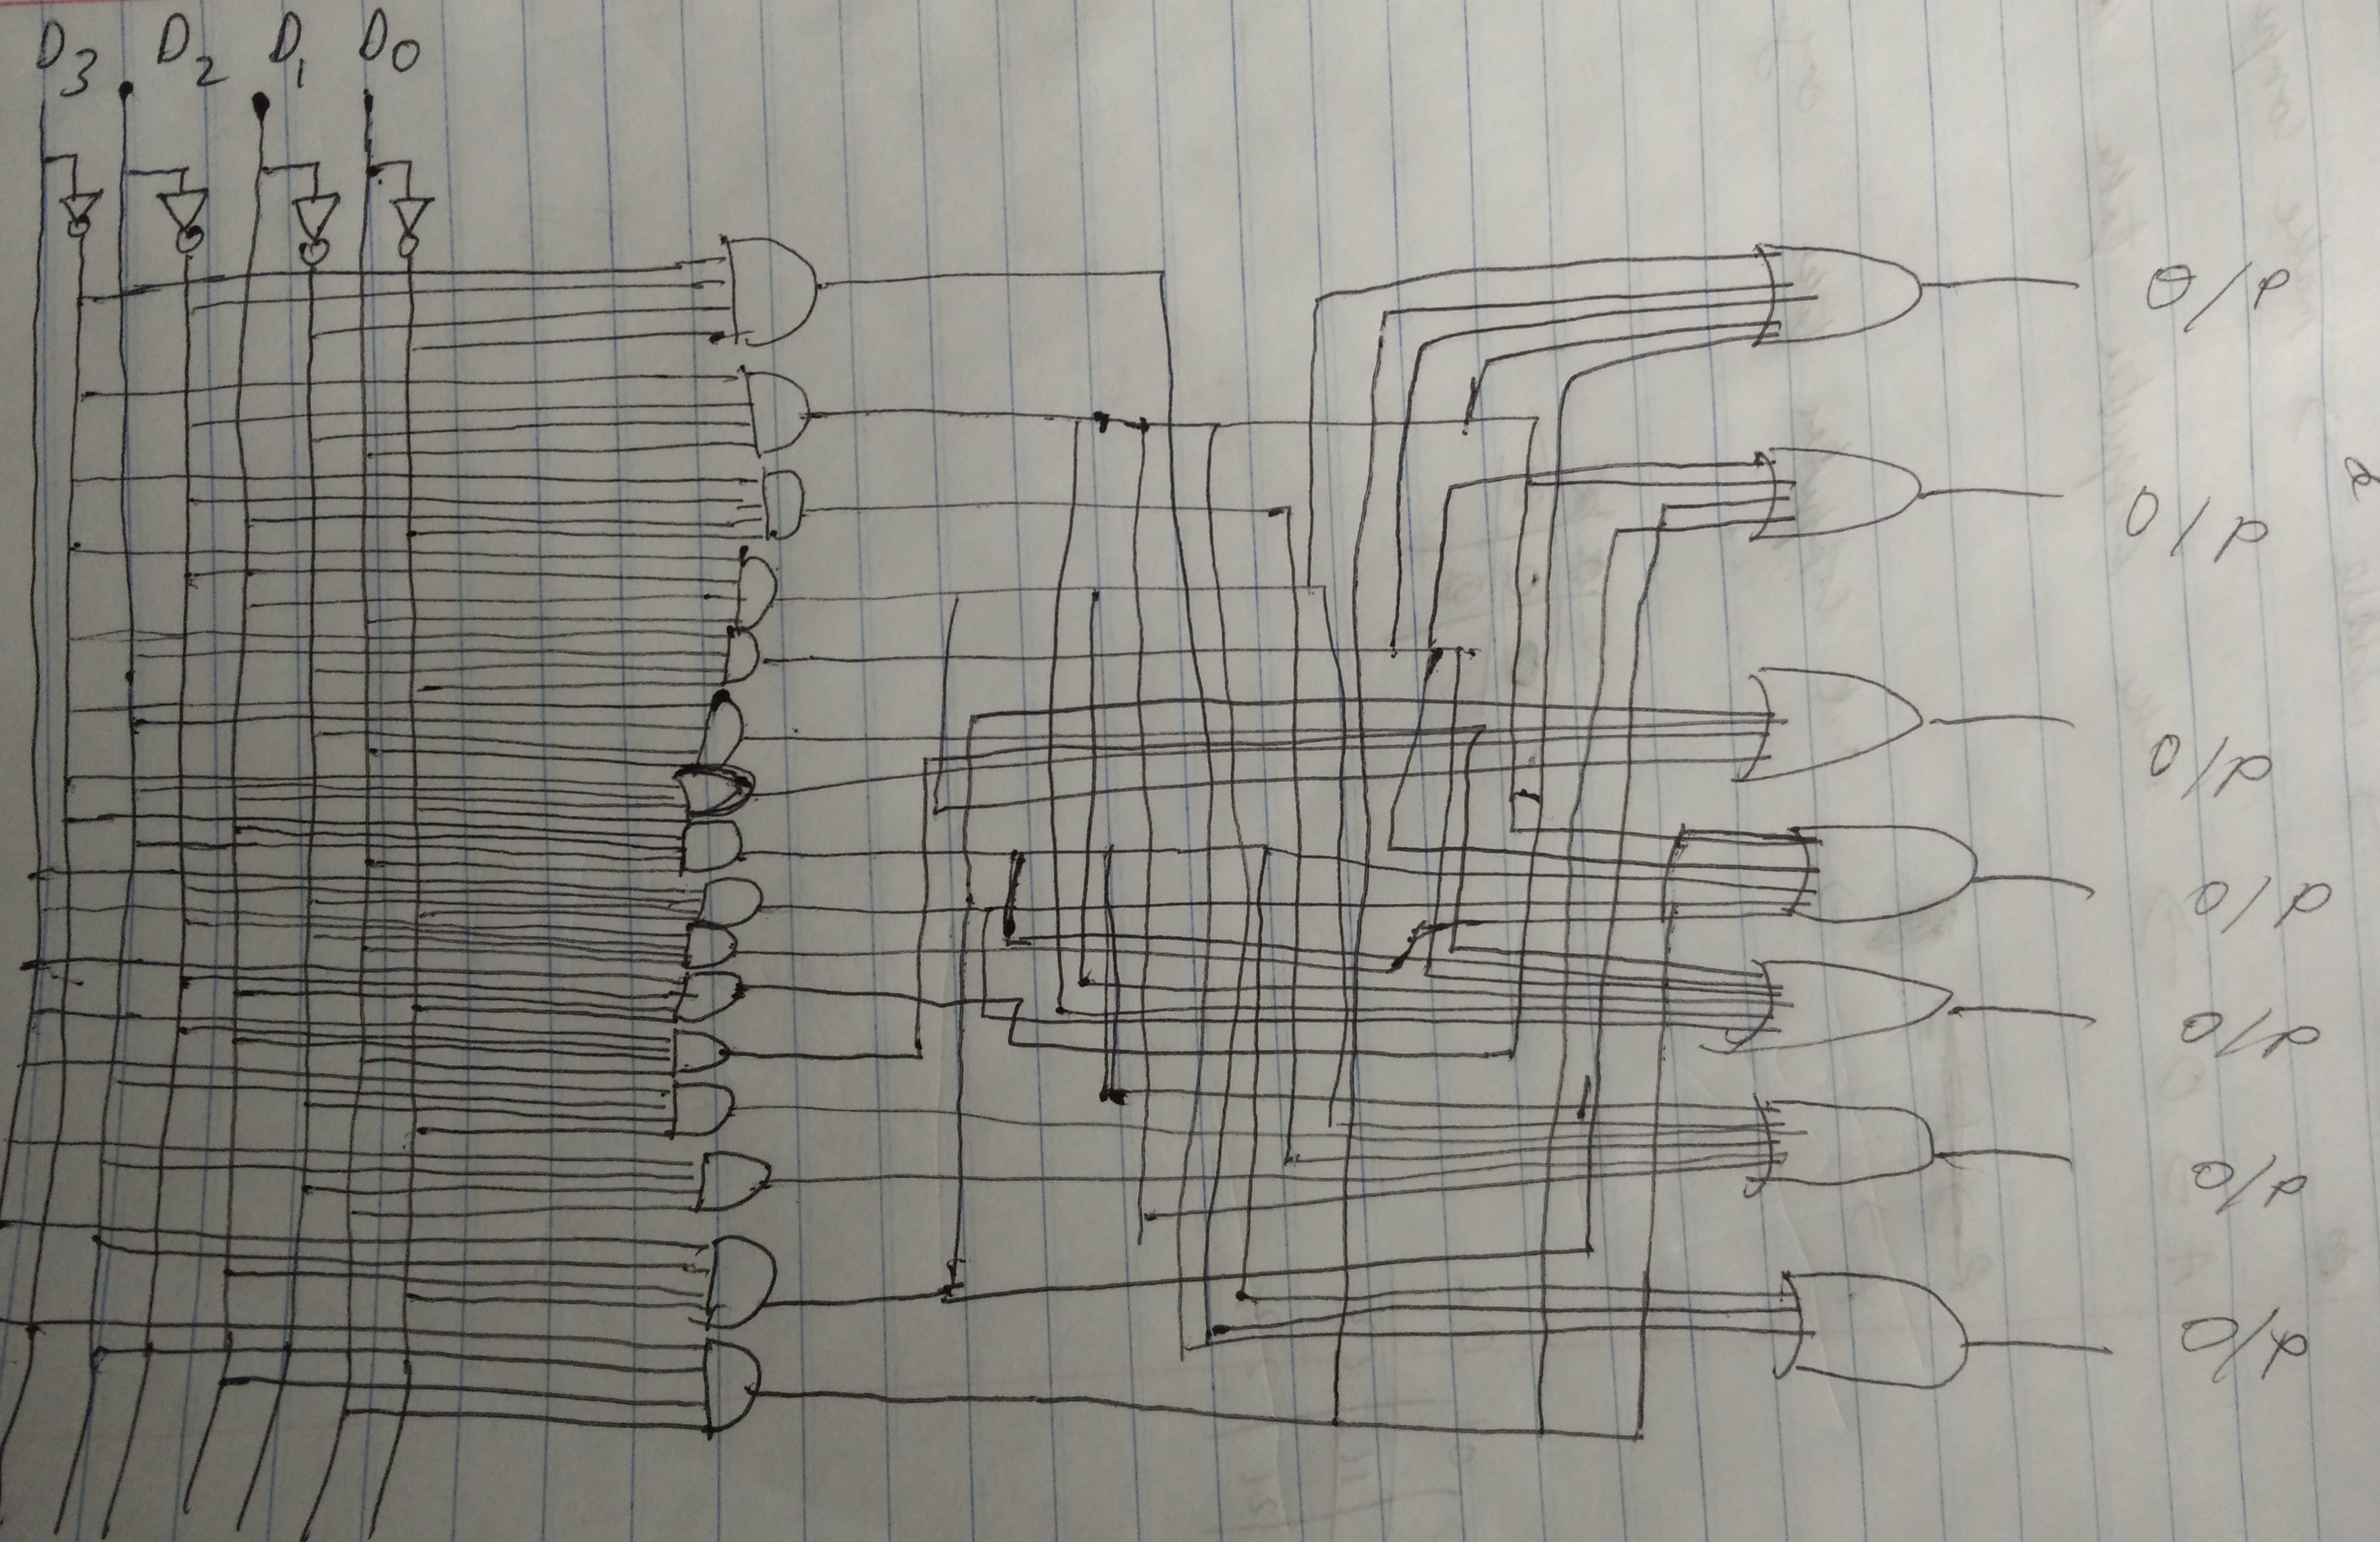 D3 D2 D1 D0
O/P
O/P
O/P
O/P
O/P
O/P
O/P